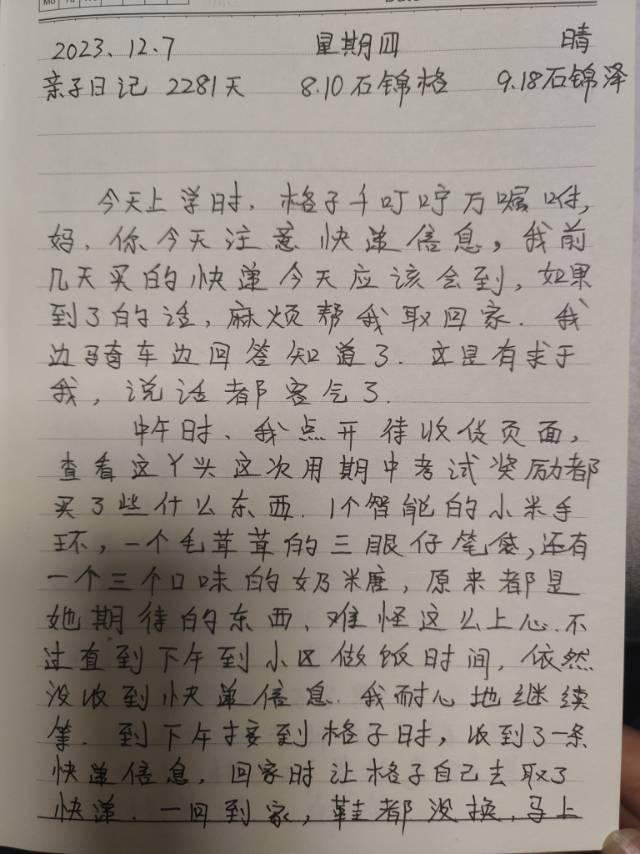 2023.12.7 星期四 晴
亲子日记 2281天 8.10石锦格 9.18石锦泽
今天上学时,格子千叮咛万嘱咐,
妈,你今天注意快递信息,我前
几天买的快递今天应该会到,如果
到了的话,麻烦帮我取回家.我
边骑车边回答知道了.这是有求于
我,说话都客气了.
中午时、我点开待收货页面,
查看这丫头这次用期中考试奖励都
买了些什么东西.1个智能的小米手
环,一个毛茸茸的三眼仔笔袋,还有
一个三个口味的奶米唐,原来都是
她期待的东西、难怪这么上心.不
过直到下午到小区做饭时间,依然
没收到快递信息.我耐心地继续
等.到下午接到格子时,收到了一条
快递信息,回家时让格子自己去取了
快递.一回到家,鞋都没换,马上